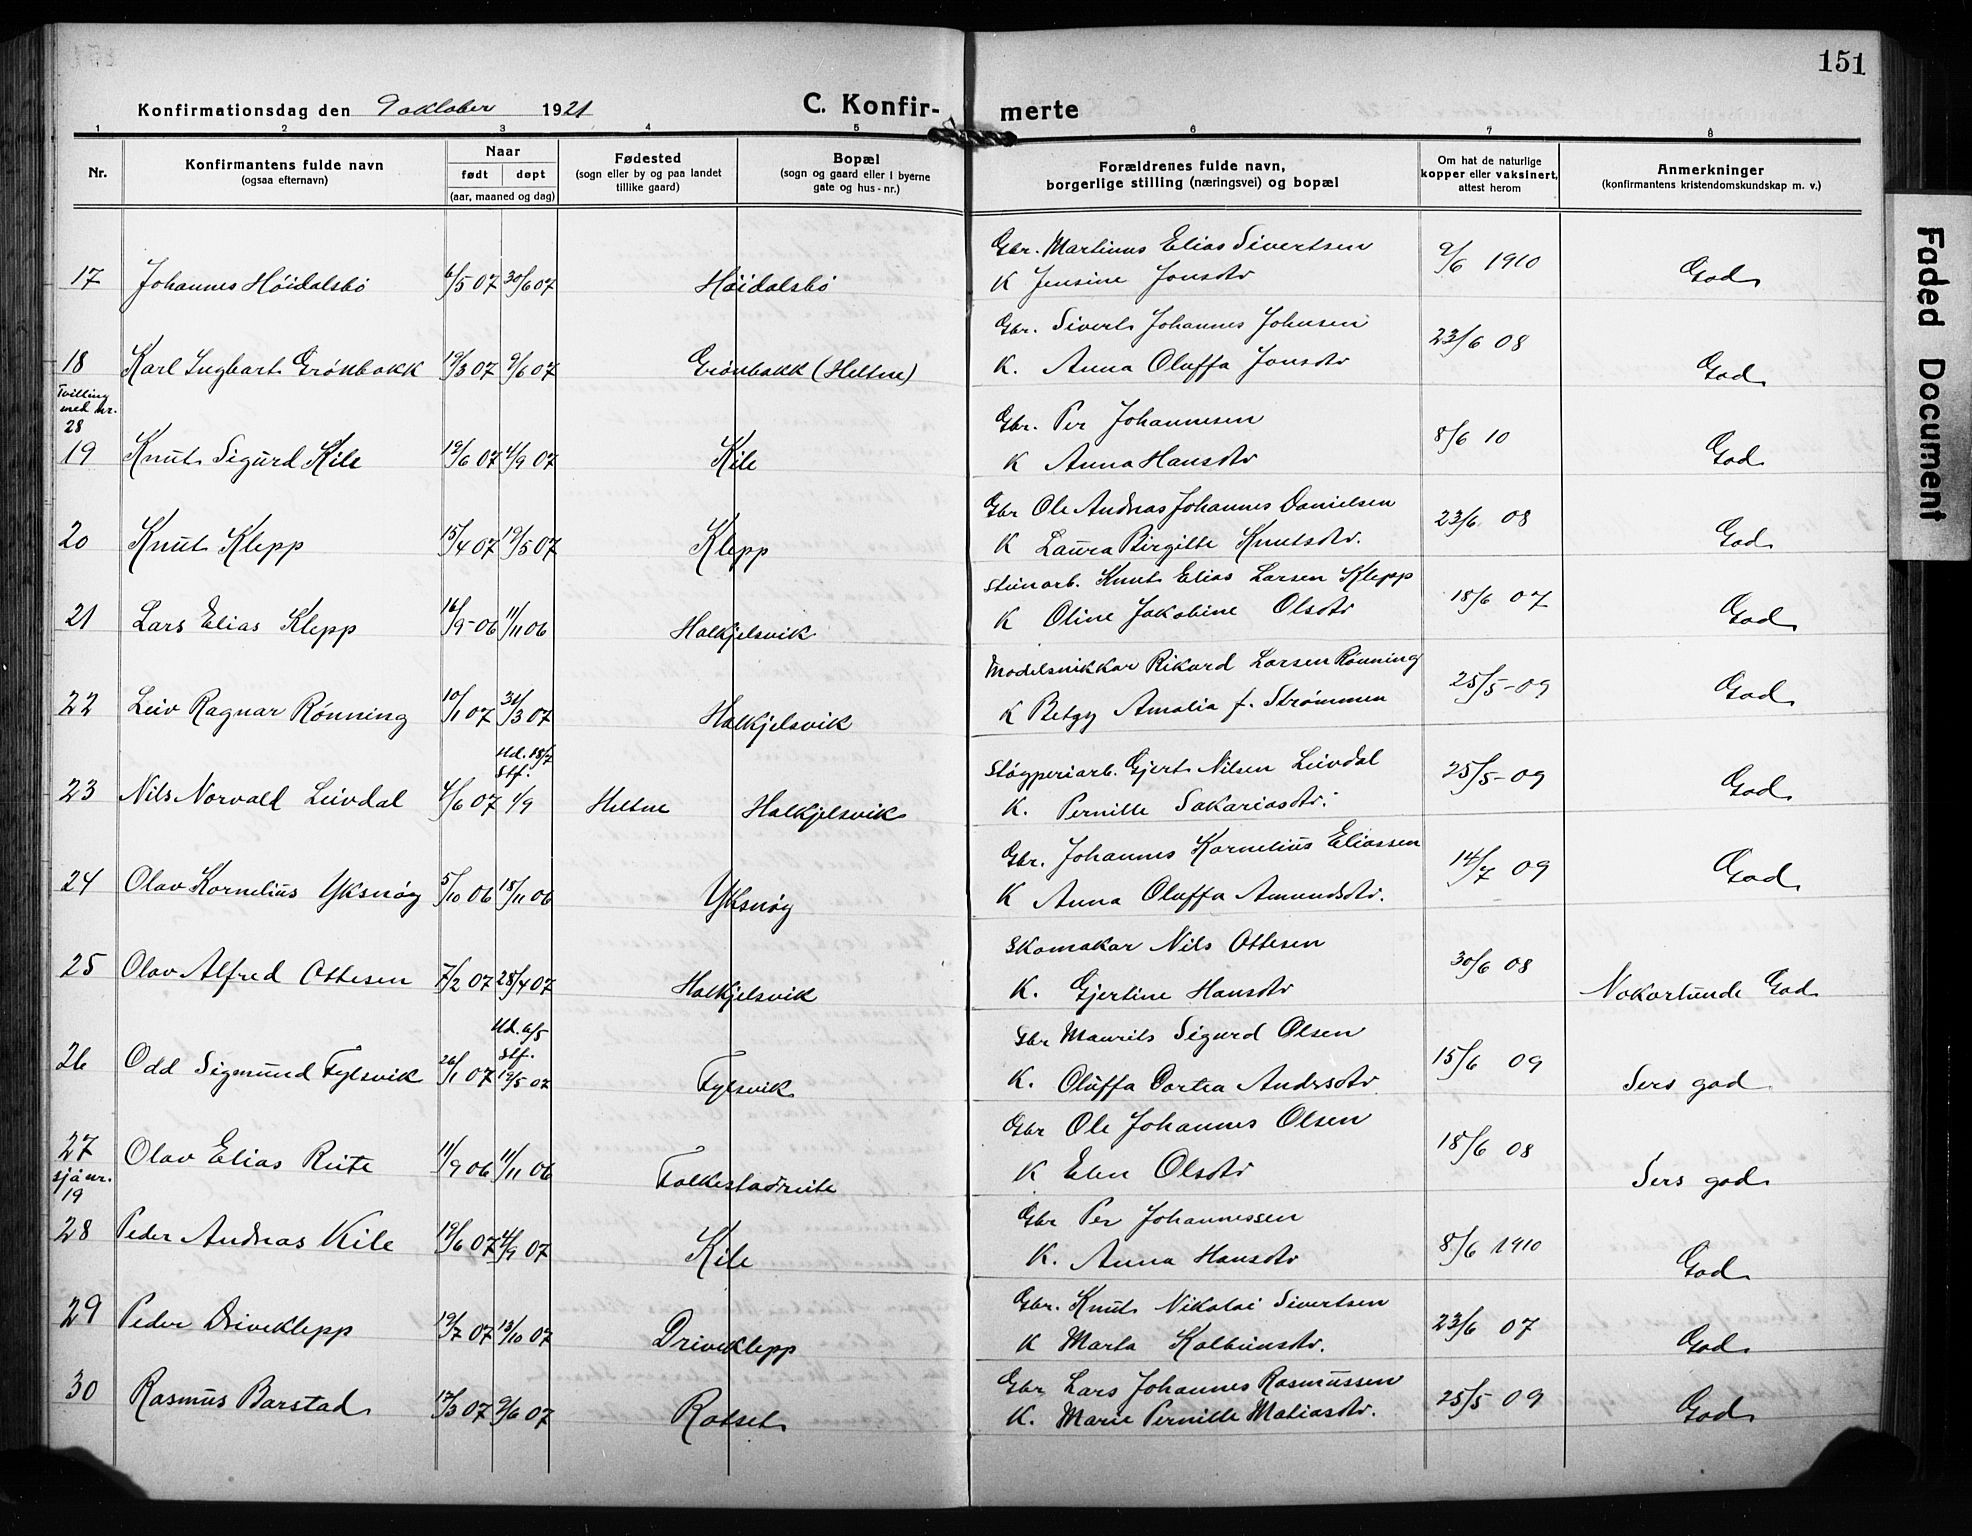 151
Konfirmationsdag den 9 oktober 1921 C. Konfir- merte
1 2 3 4 5 6 7 8
Nr.
Konfirmantens fulde navn
(ogsaa efternavn)
Naar
født døpt
(aar, maaned og dag)
Fødested
(sogn eller by og paa landet
tillike gaard)
Bopæl
(sogn og gaard eller i byerne
gate og hus-nr.)
Forældrenes fulde navn,
borgerlige stilling (næringsvei) og bopæl
Om hat de naturlige
kopper eller vaksinert,
attest herom
Anmerkninger
(konfirmantens kristendomskundskap m. v.)
Gbr. Martinus Elias Sivertsen 9/6 1910
17 Johannes Höidalsbö 6/5 07 30/6 07 Höidalsbö K Jensine Jonsdtr God
Gbr. Siverts Johannes Johnsen 23/6 08
18 Karl Ingbart Grönbakk 19/3 07 9/6 07 Grönbakk (Heltne) K. Anna Oluffa Jonsdtr God
Tvilling
med nr.
28
Gbr. Per Johannesen 8/6 10
19 Knut Sigurd Kile 19/6 07 4/9 07 Kile K Anna Hansdtr God
Gbr Ole Andreas Johannes Danielsen 23/6 08
20 Knut Klepp 15/4 07 19/5 07 Klepp K Laura Birgitte Knutsdtr. God
Steinarb. Knut Elias Larsen Klepp 18/6 07
21 Lars Elias Klepp 16/9-06 11/11 06 Halkjelsvik K Oline Jakobine Olsdtr God
Modelsnikkar Rikard Larsen Rönning 25/5-09
22 Leiv Ragnar Rönning 10/1 07 31/3 07 Halkjelsvik K Betzy Amalia f. Strømmen God
Hd. 18/7
Stf.
Støyperiarb. Gjert Nilsen Leivdal 25/5-09
23 Nils Norvald Leivdal 4/6 07 1/9 Heltne Halkjelsvik K. Pernille Sakariasdtr. God
Gbr. Johannes Kornelius Eliassen 14/7 09
24 Olav Kornelius Yksnöy 5/10 06 18/11 06 Yksnöy K Anna Oluffa Amundsdtr. God
Skomakar Nils Ottesen 30/6 08
25 Olav Alfred Ottesen 7/2 07 28/4 07 Halkjelsvik K. Gjertine Hansdtr Nokorlunde God
Hd. 6/5
Stf.
Gbr Maurits Sigurd Olsen 15/6 09
26 Odd Sigmund Fylsvik 26/1 07 19/5 07 Fylsvik K. Oluffa Dortea Andrsdtr Sers god
Gbr Ole Johannes Olsen 18/6 08
27 Olav Elias Reite 11/9 06 11/11 06 Folkestadreite K Elen Olsdtr Sers god
sjå nr.
19
Gbr Per Johannessen 8/6 1910
28 Peder Andreas Kile 19/6 07 4/9 07 Kile K. Anna Hansdtr God
Gbr. Knut Nikolai Sivertsen 23/6 07
29 Peder Driveklepp 19/7 07 13/10 07 Driveklepp K Marta Kolbeinsdtr. God
Gbr Lars Johannes Rasmussen 25/5 09
30 Rasmus Barstad 17/3 07 9/6 07 Rotset K. Marie Pernille Matiasdtr. God
Faded Document